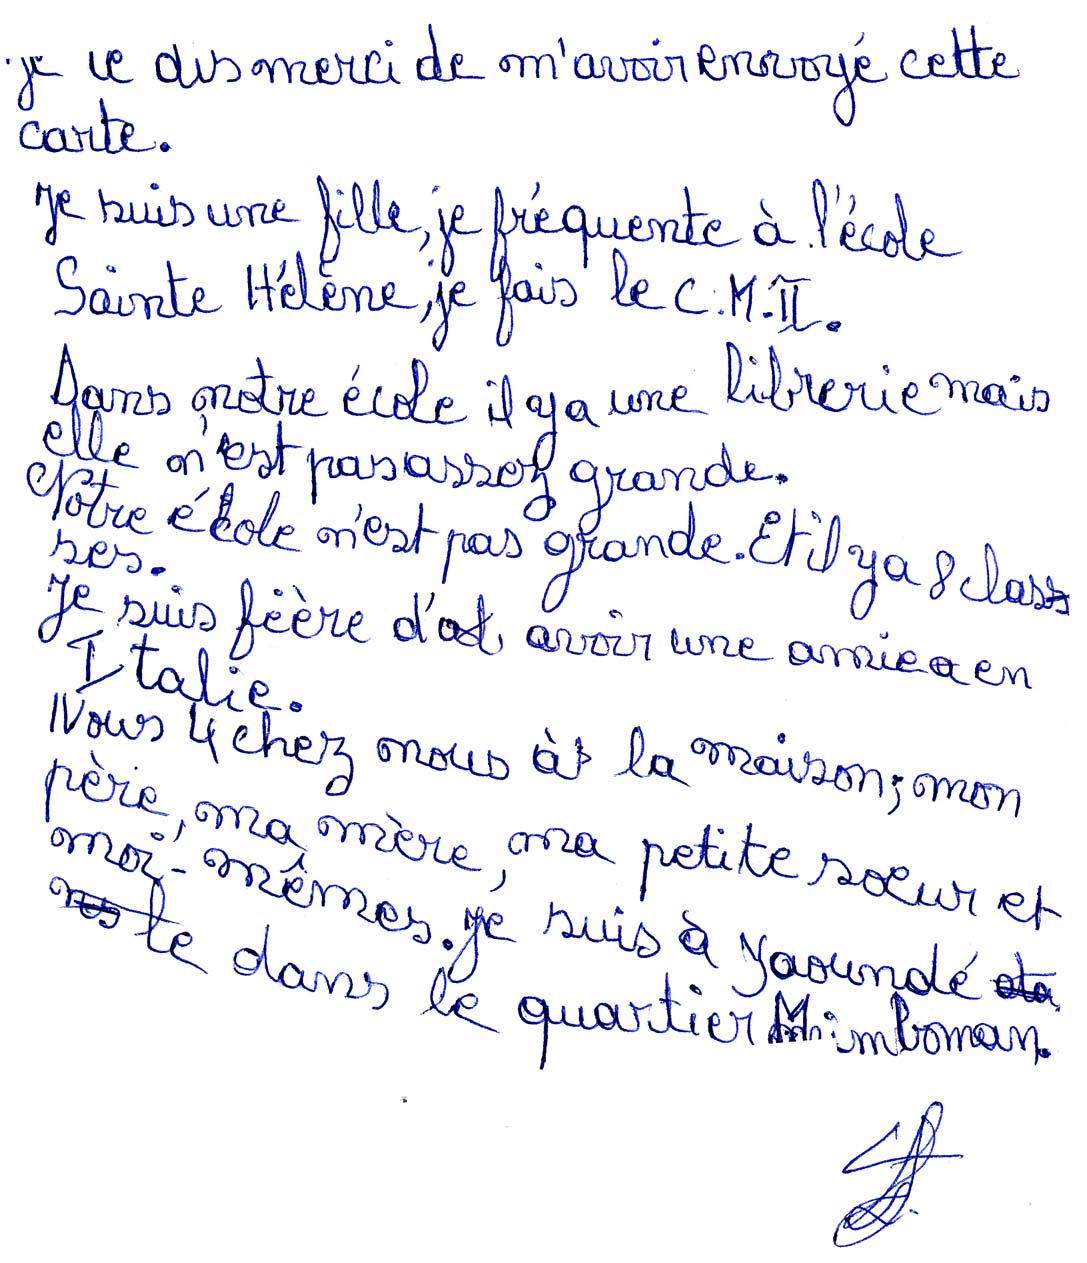 je te dis merci de m'avoir envoyé cette
carte.
Je suis une fille, je fréquente à l'école
Sainte Hélène, je fais le C.M.II.
Dans notre école il y a une librerie mais
elle n'est pas assez grande.
Notre école n'est pas grande. Et il y a 8 clas
ses.
Je suis féère d' avoir une amie en
Italie.
Nous 4 chez nous à la maison; mon
père, ma mère, ma petite soeur et
moi-mêmes. je suis à yaoundé
te dans le quartier Mimboman.